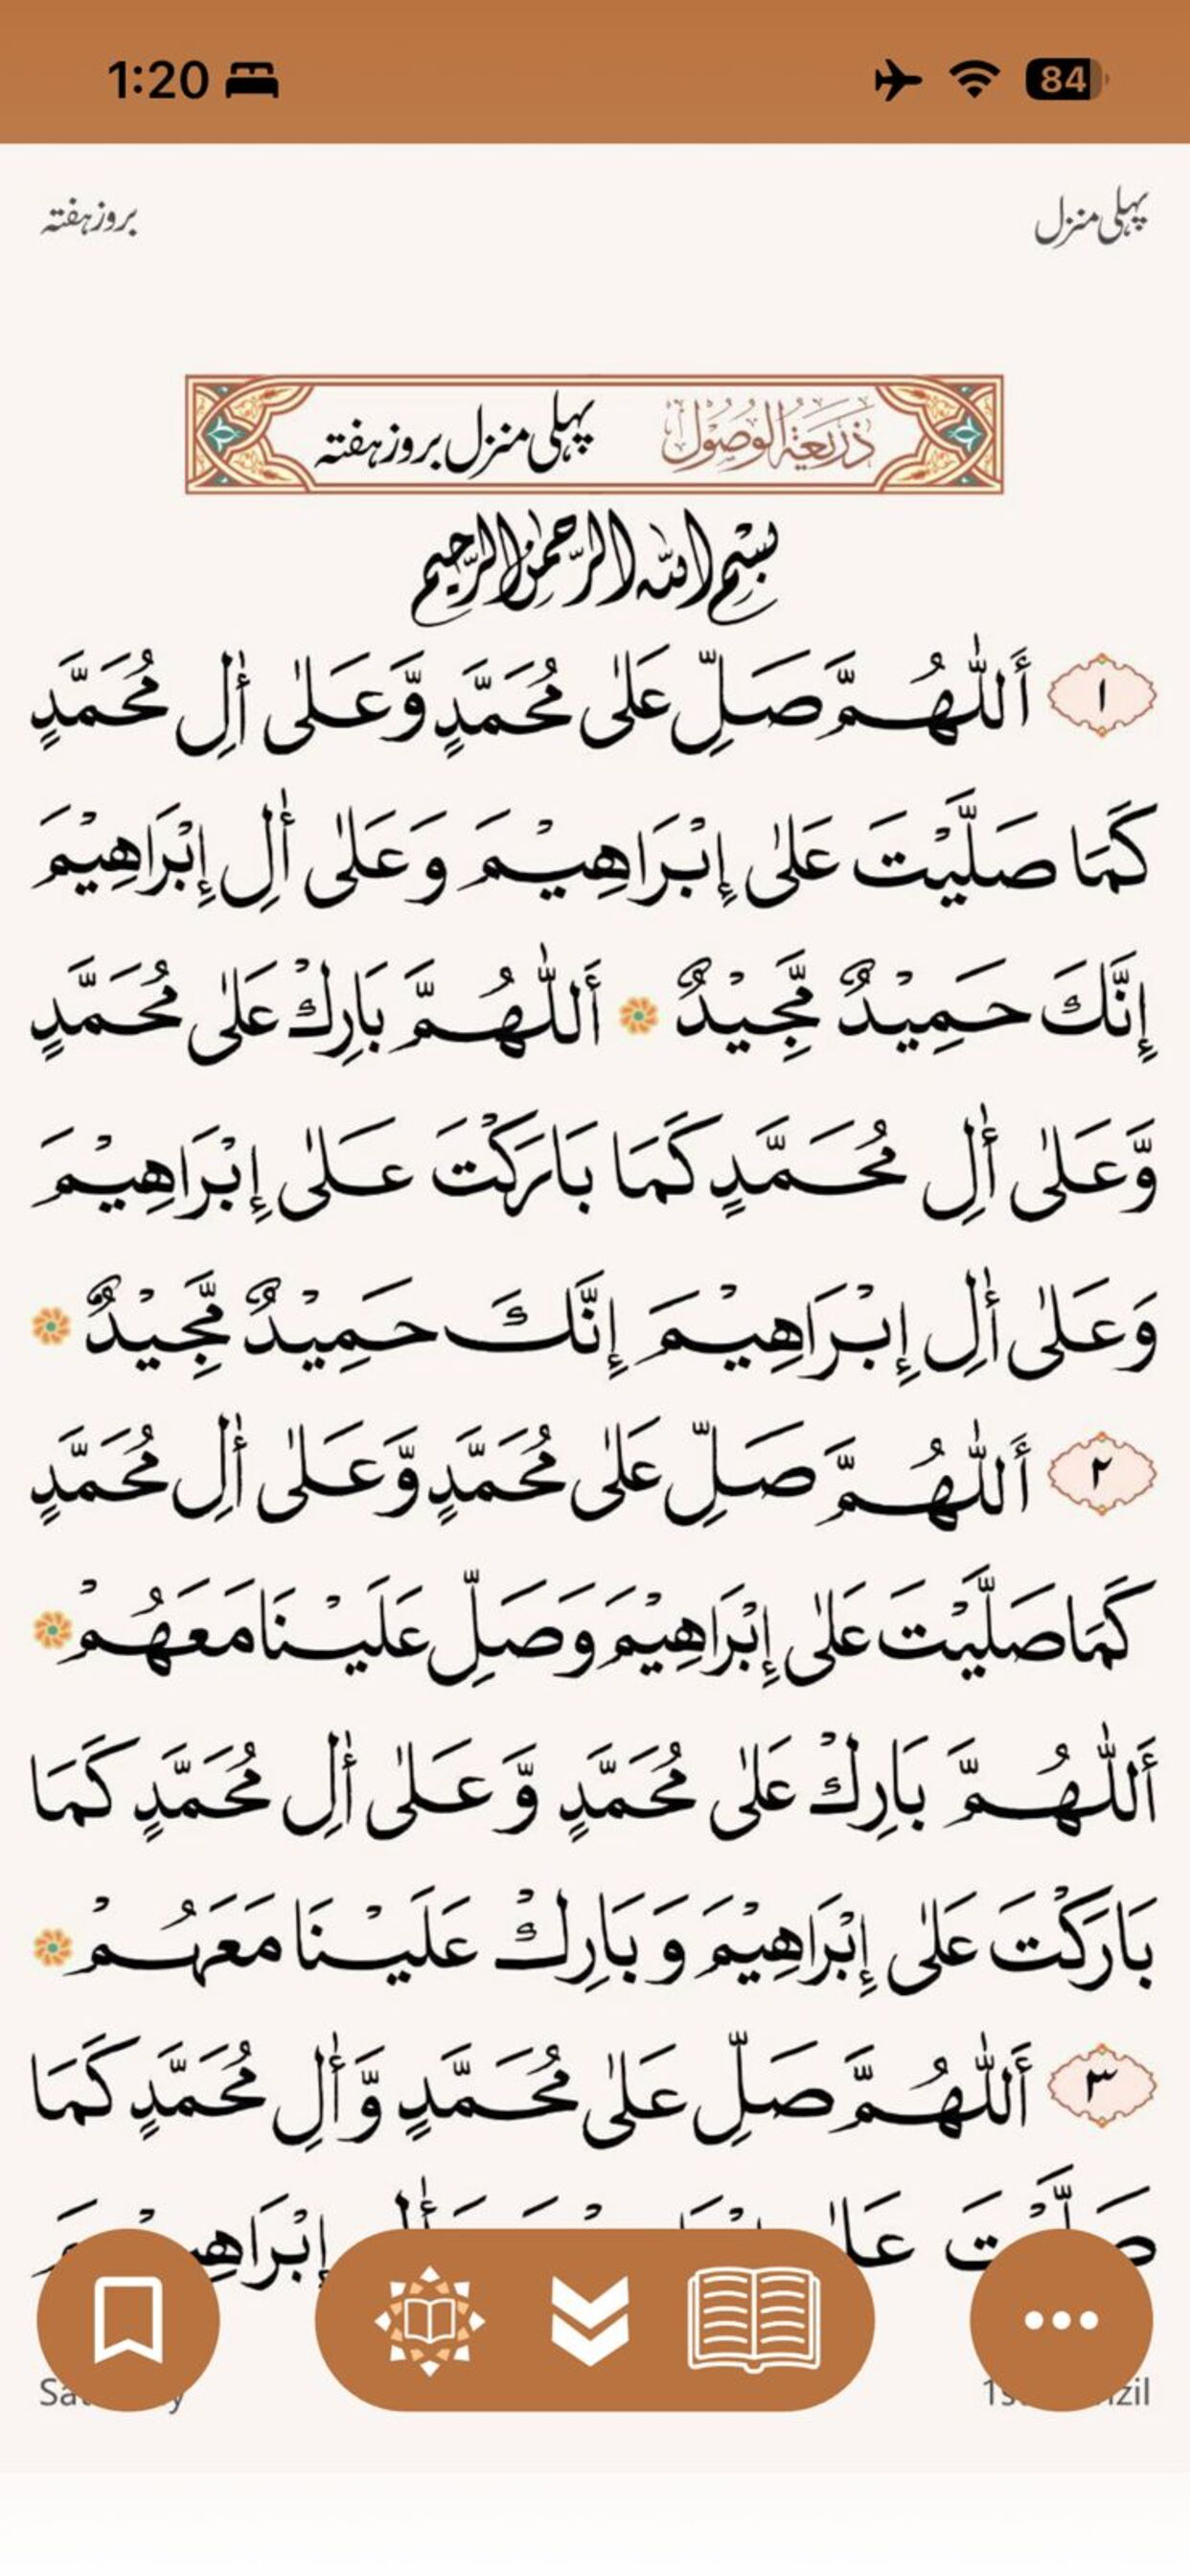 1:20 84
پہلی منزل بروز ہفتہ
ذَرِيعَةُ الْوُصُوْلِ پہلی منزل بروز ہفتہ
بِسْمِ اللهِ الرَّحْمٰنِ الرَّحِيْمِ
١ أَللّٰهُمَّ صَلِّ عَلٰى مُحَمَّدٍ وَّعَلٰى أٰلِ مُحَمَّدٍ
كَمَا صَلَّيْتَ عَلٰى إِبْرَاهِيْمَ وَعَلٰى أٰلِ إِبْرَاهِيْمَ
إِنَّكَ حَمِيْدٌ مَّجِيْدٌ أَللّٰهُمَّ بَارِكْ عَلٰى مُحَمَّدٍ
وَّعَلٰى أٰلِ مُحَمَّدٍ كَمَا بَارَكْتَ عَلٰى إِبْرَاهِيْمَ
وَعَلٰى أٰلِ إِبْرَاهِيْمَ إِنَّكَ حَمِيْدٌ مَّجِيْدٌ
٢ أَللّٰهُمَّ صَلِّ عَلٰى مُحَمَّدٍ وَّعَلٰى أٰلِ مُحَمَّدٍ
كَمَا صَلَّيْتَ عَلٰى إِبْرَاهِيْمَ وَصَلِّ عَلَيْنَا مَعَهُمْ
أَللّٰهُمَّ بَارِكْ عَلٰى مُحَمَّدٍ وَّعَلٰى أٰلِ مُحَمَّدٍ كَمَا
بَارَكْتَ عَلٰى إِبْرَاهِيْمَ وَبَارِكْ عَلَيْنَا مَعَهُمْ
٣ أَللّٰهُمَّ صَلِّ عَلٰى مُحَمَّدٍ وَّأٰلِ مُحَمَّدٍ كَمَا
صَلَّيْتَ عَلٰى إِبْرَاهِيْمَ